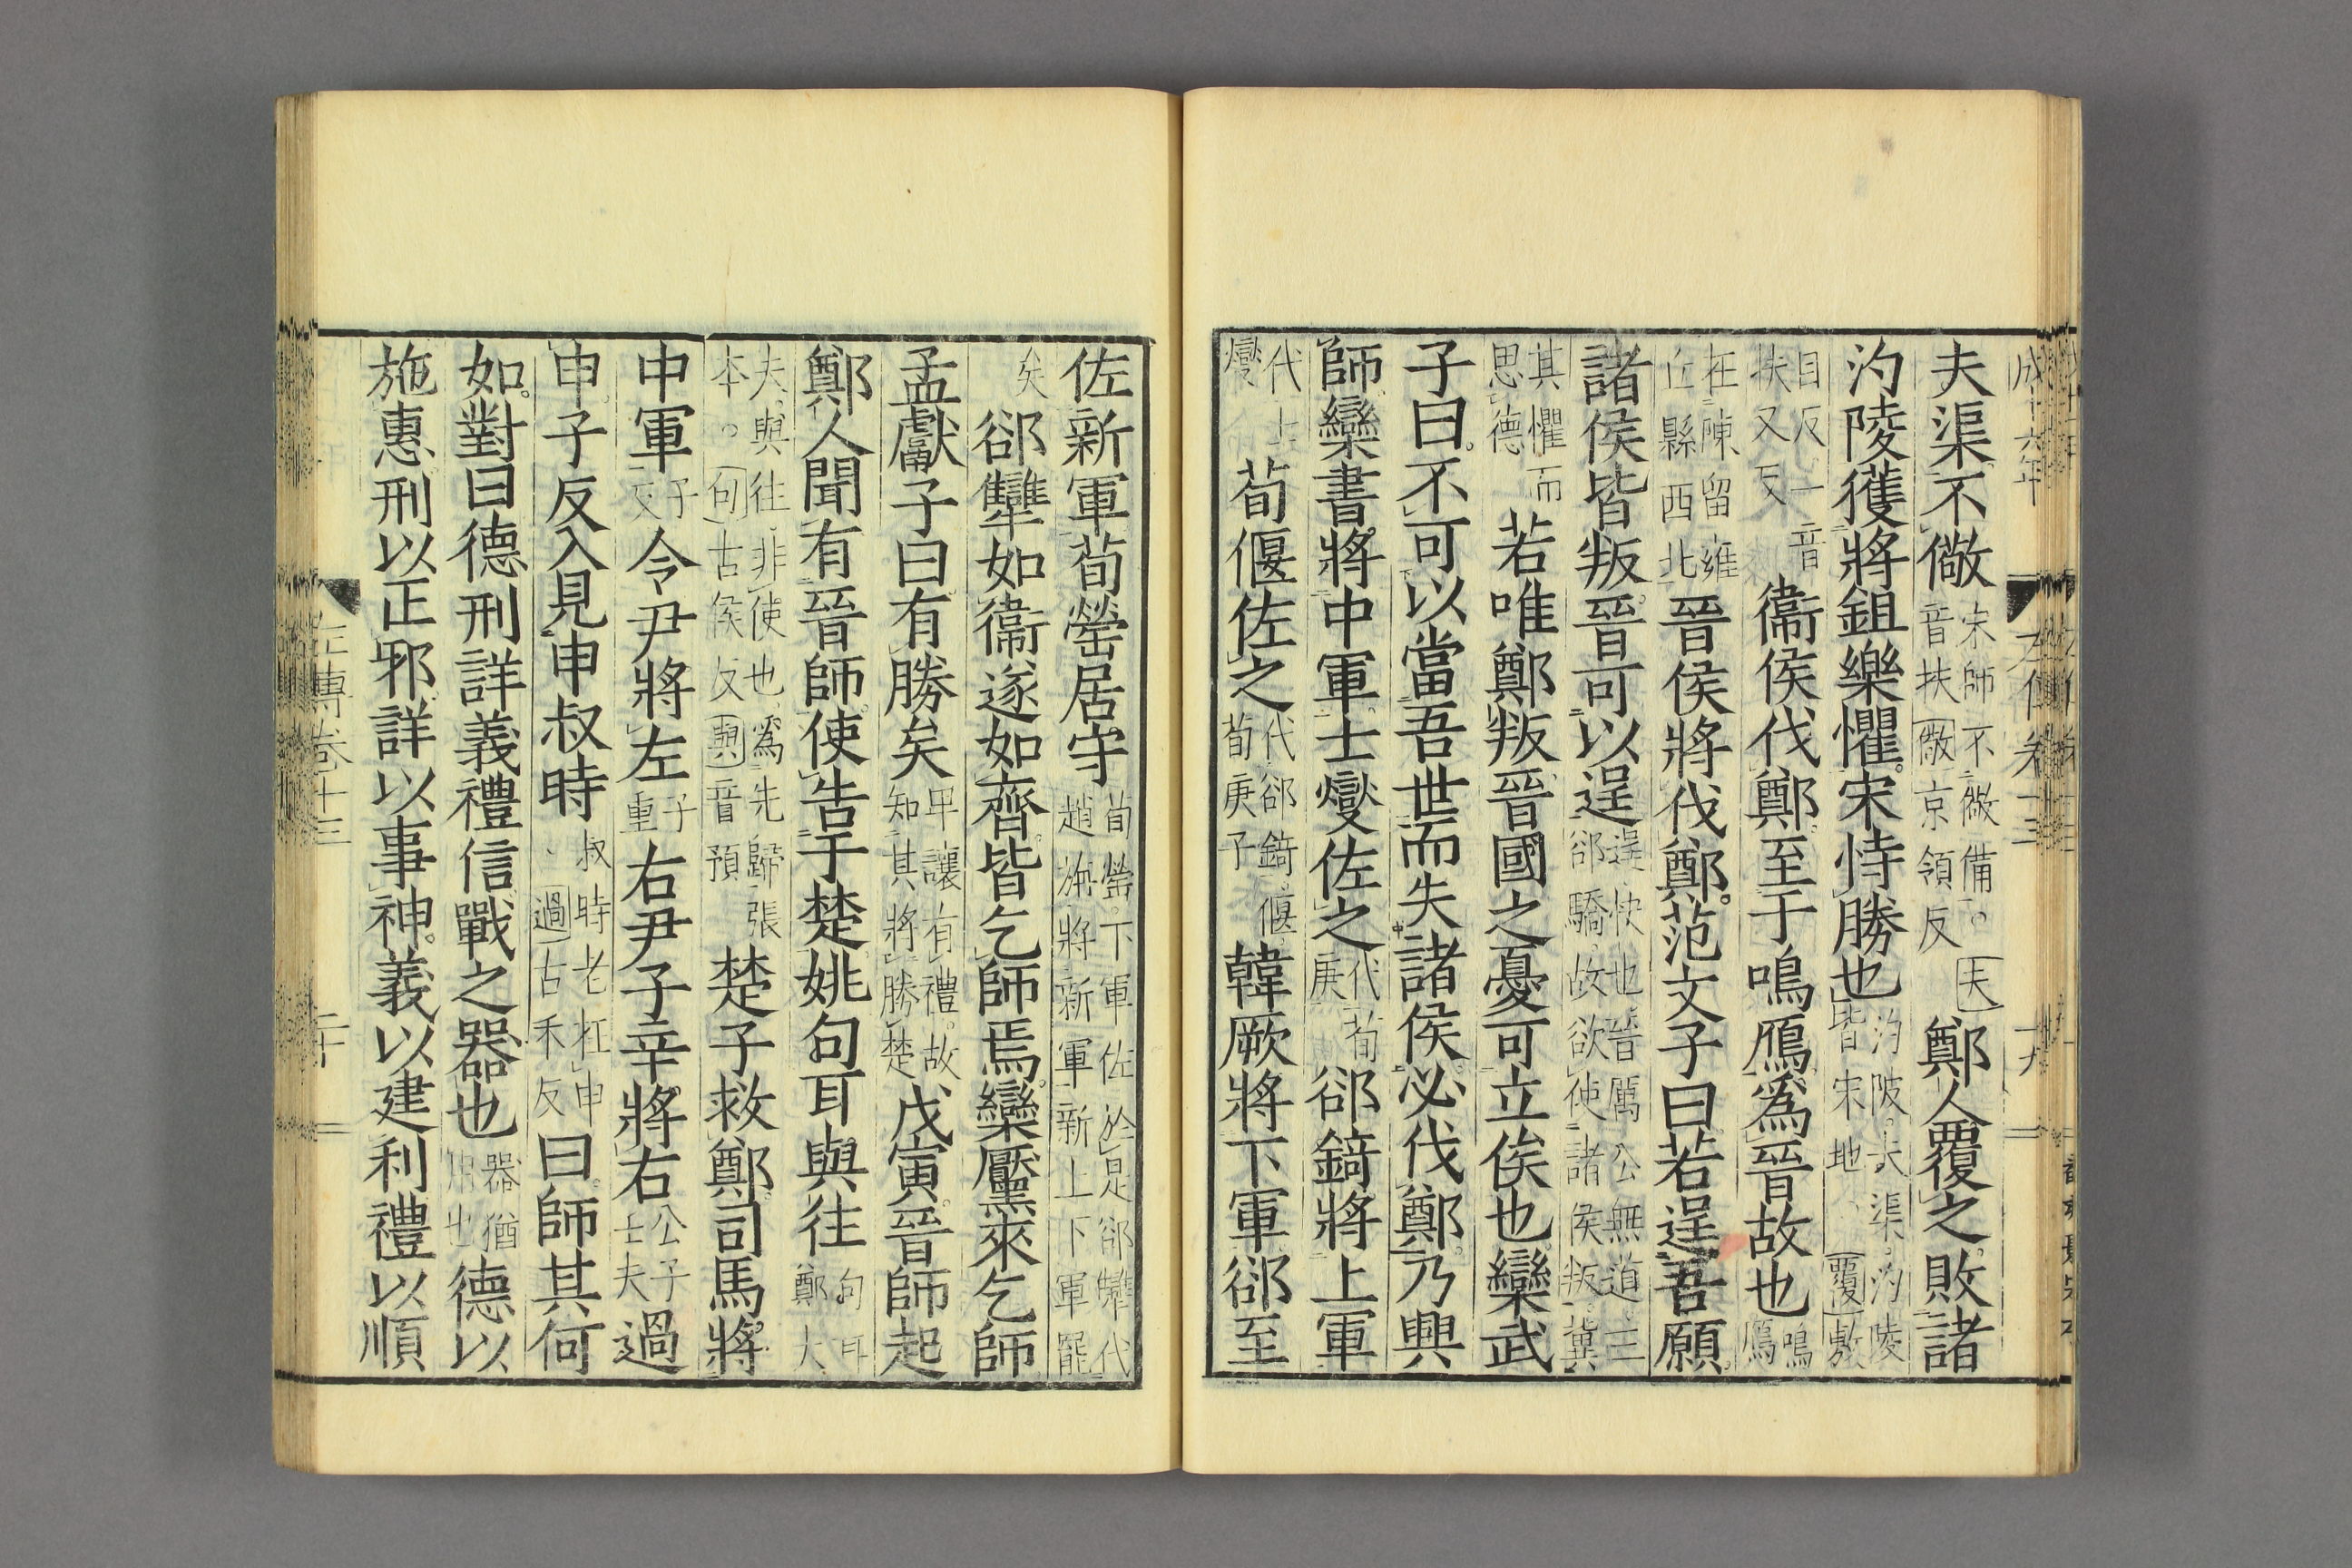 成十六年 左傳卷十三 十九
夫渠不儆宋師不儆備。夫音扶儆京領反鄭人覆之敗諸
汋陵獲將鉏樂懼宋恃勝也汋陂夫渠汋陵皆宋地覆敷
目反一音扶又反衞侯伐鄭至于鳴鴈爲晉故也鳴鴈
在陳留雍丘縣西北晉侯將伐鄭范文子曰若逞吾願
諸侯皆叛晉可以逞逞快也晉厲公無道三郤驕故欲使諸侯叛冀
其懼而思德若唯鄭叛晉國之憂可立俟也欒武
子曰不可以當吾世而失諸侯必伐鄭乃興
師欒書將中軍士燮佐之代荀庚郤錡將上軍
代士燮荀偃佐之代郤錡偃荀庚子韓厥將下軍郤至
佐新軍荀罃居守荀罃下軍佐於是郤犨代趙旃將新軍新上下軍罷
矣郤犨如衞遂如齊皆乞師焉欒黶來乞師
孟獻子曰有勝矣卑讓有禮故知其將勝楚戊寅晉師起
鄭人聞有晉師使告于楚姚句耳與往句耳鄭大
夫與往非使也爲先歸張本。句古侯反與音預楚子救鄭司馬將
中軍子反令尹將左子重右尹子辛將右公子士夫過
申子反入見申叔時叔時老在申過古禾反曰師其何
如對曰德刑詳義禮信戰之器也器猶用也德以
施惠刑以正邪詳以事神義以建利禮以順
左傳卷十三 二十